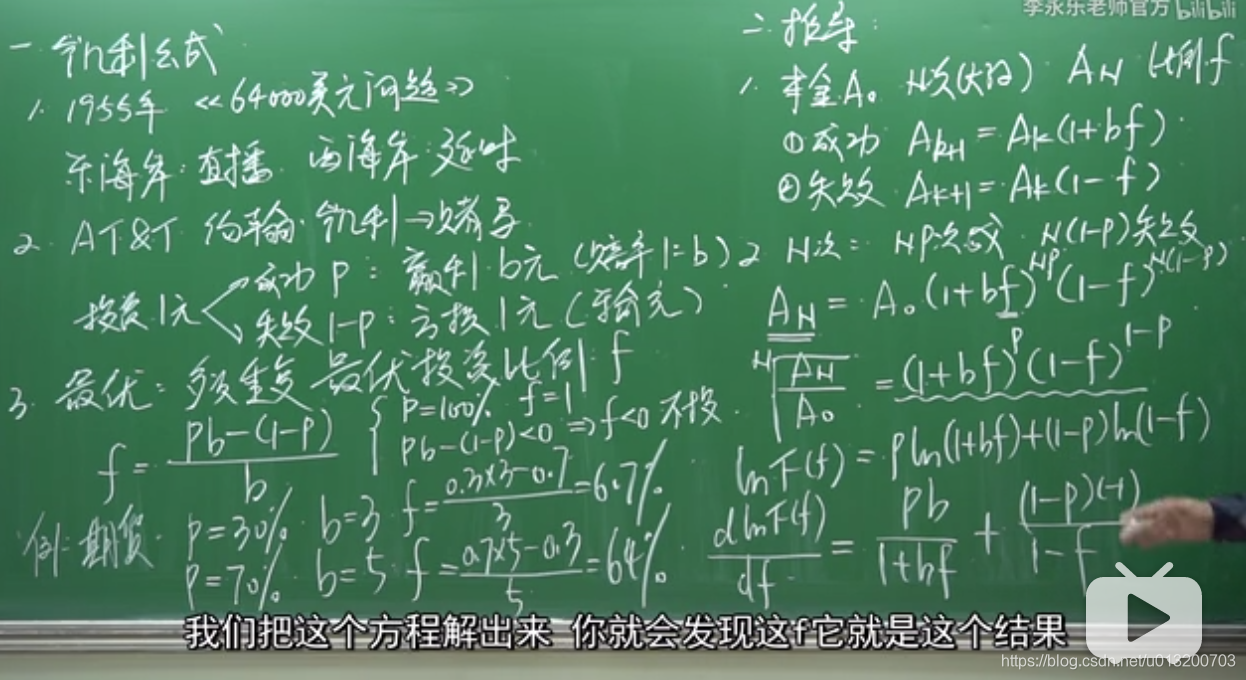 李永乐老师官方 bilibili
一 凯利公式
1. 1955年 《64000美元问题》
东海岸:直播 西海岸:延时
2. AT&T 约翰·凯利→赌马
投资1元
成功 P: 赢利 b元 (赔率1=b)
失败 1-P: 亏损 1元 (输完)
3. 最优: 多次重复 最优投资比例: f
f = \frac{Pb-(1-P)}{b}
P=100% f=1
Pb-(1-P)<0 ⇒ f<0 不投.
例: 期货.
P=30%. b=3 f=\frac{0.3×3-0.7}{3}=6.7%
P=70%. b=5. f=\frac{0.7×5-0.3}{5}=64%.
二. 推导:
1. 本金A₀ N次(大数) A_N 比例f
①成功 A_{k+1}=A_k(1+bf)
②失败 A_{k+1}=A_k(1-f)
2 N次: NP次成功. N(1-P)失败
A_N = A₀(1+bf)^{NP}(1-f)^{N(1-P)}
\sqrt[N]{\frac{A_N}{A_0}} = (1+bf)^P(1-f)^{1-P}
lnF(f)=Pln(1+bf)+(1-P)ln(1-f)
\frac{dlnF(f)}{df} = \frac{Pb}{1+bf} + \frac{(1-P)(-1)}{1-f}
我们把这个方程解出来 你就会发现这f它就是这个结果
https://blog.csdn.net/u013200703